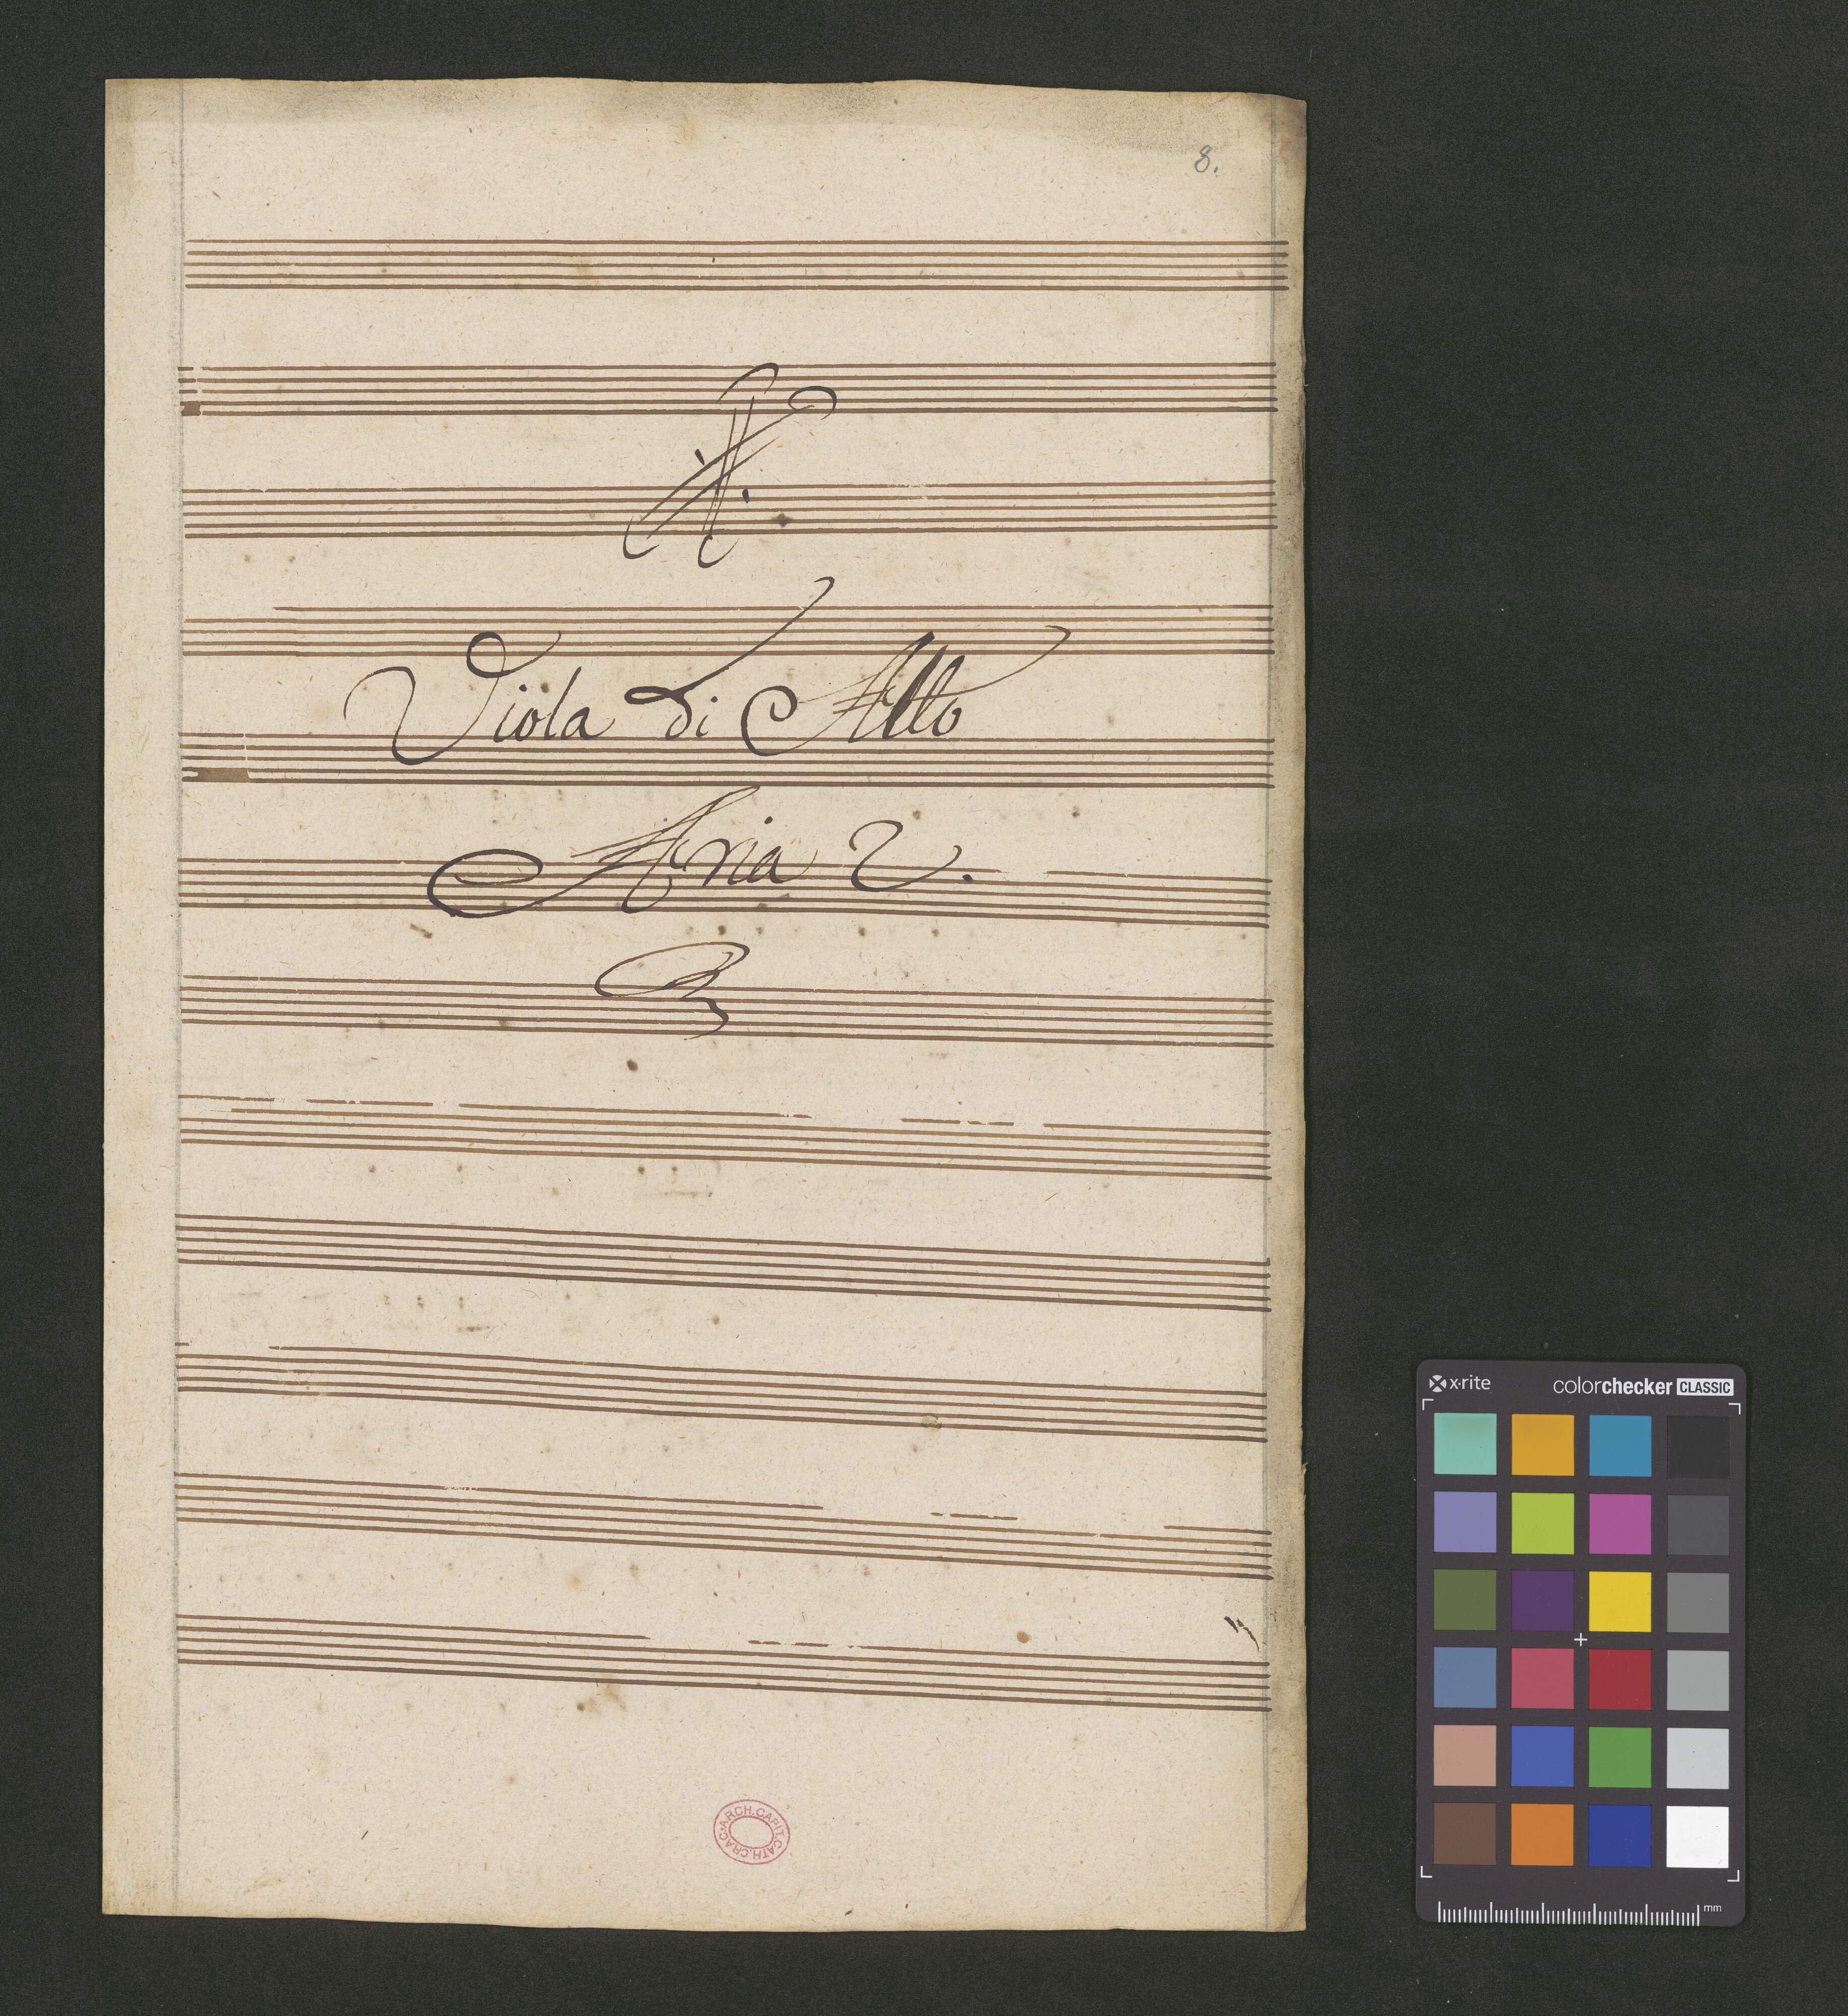 8.
Viola di Alto
Aria 2.
ARCH.CAPIT.CATH.CRAC.
x·rite colorchecker CLASSIC
mm